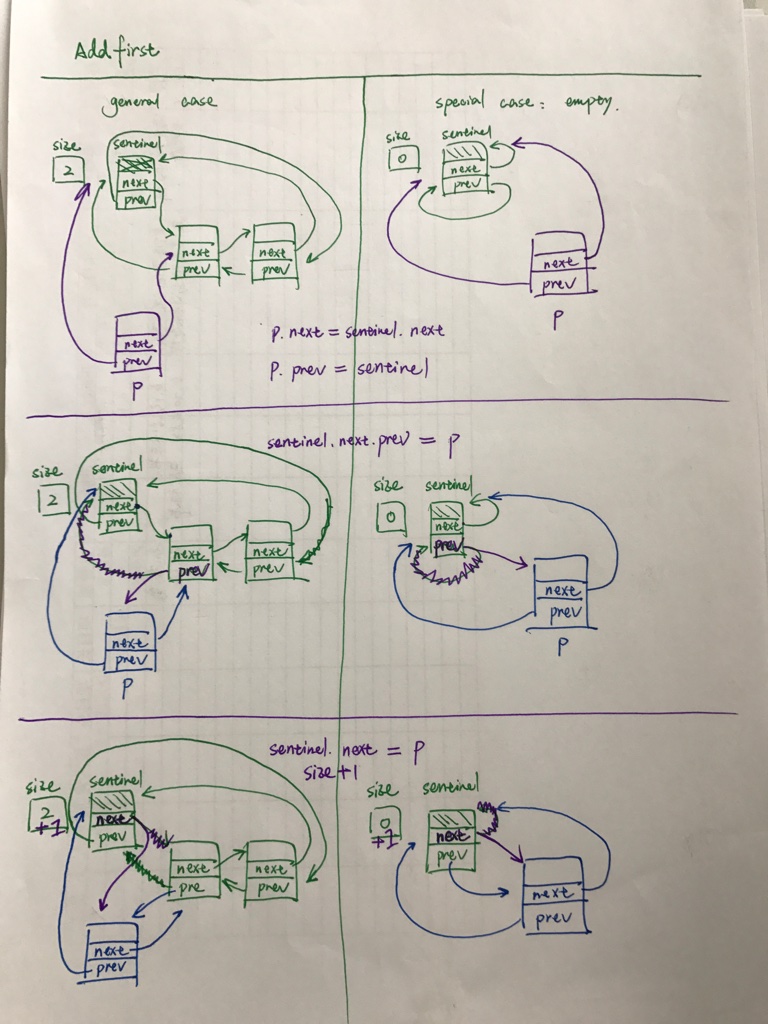 Add first
general case
special case: empty.
size
sentinel
2
next
prev
next
prev
next
prev
next
prev
P
size
sentinel
0
next
prev
next
prev
P
P. next = sentinel. next
P. prev = sentinel
sentinel. next. prev = P
size
sentinel
2
next
prev
next
prev
next
prev
next
prev
P
size
sentinel
0
next
prev
next
prev
P
sentinel. next = P
size +1
size
sentinel
2
+1
next
prev
next
pre
next
prev
next
prev
size
sentinel
0
+1
next
prev
next
prev